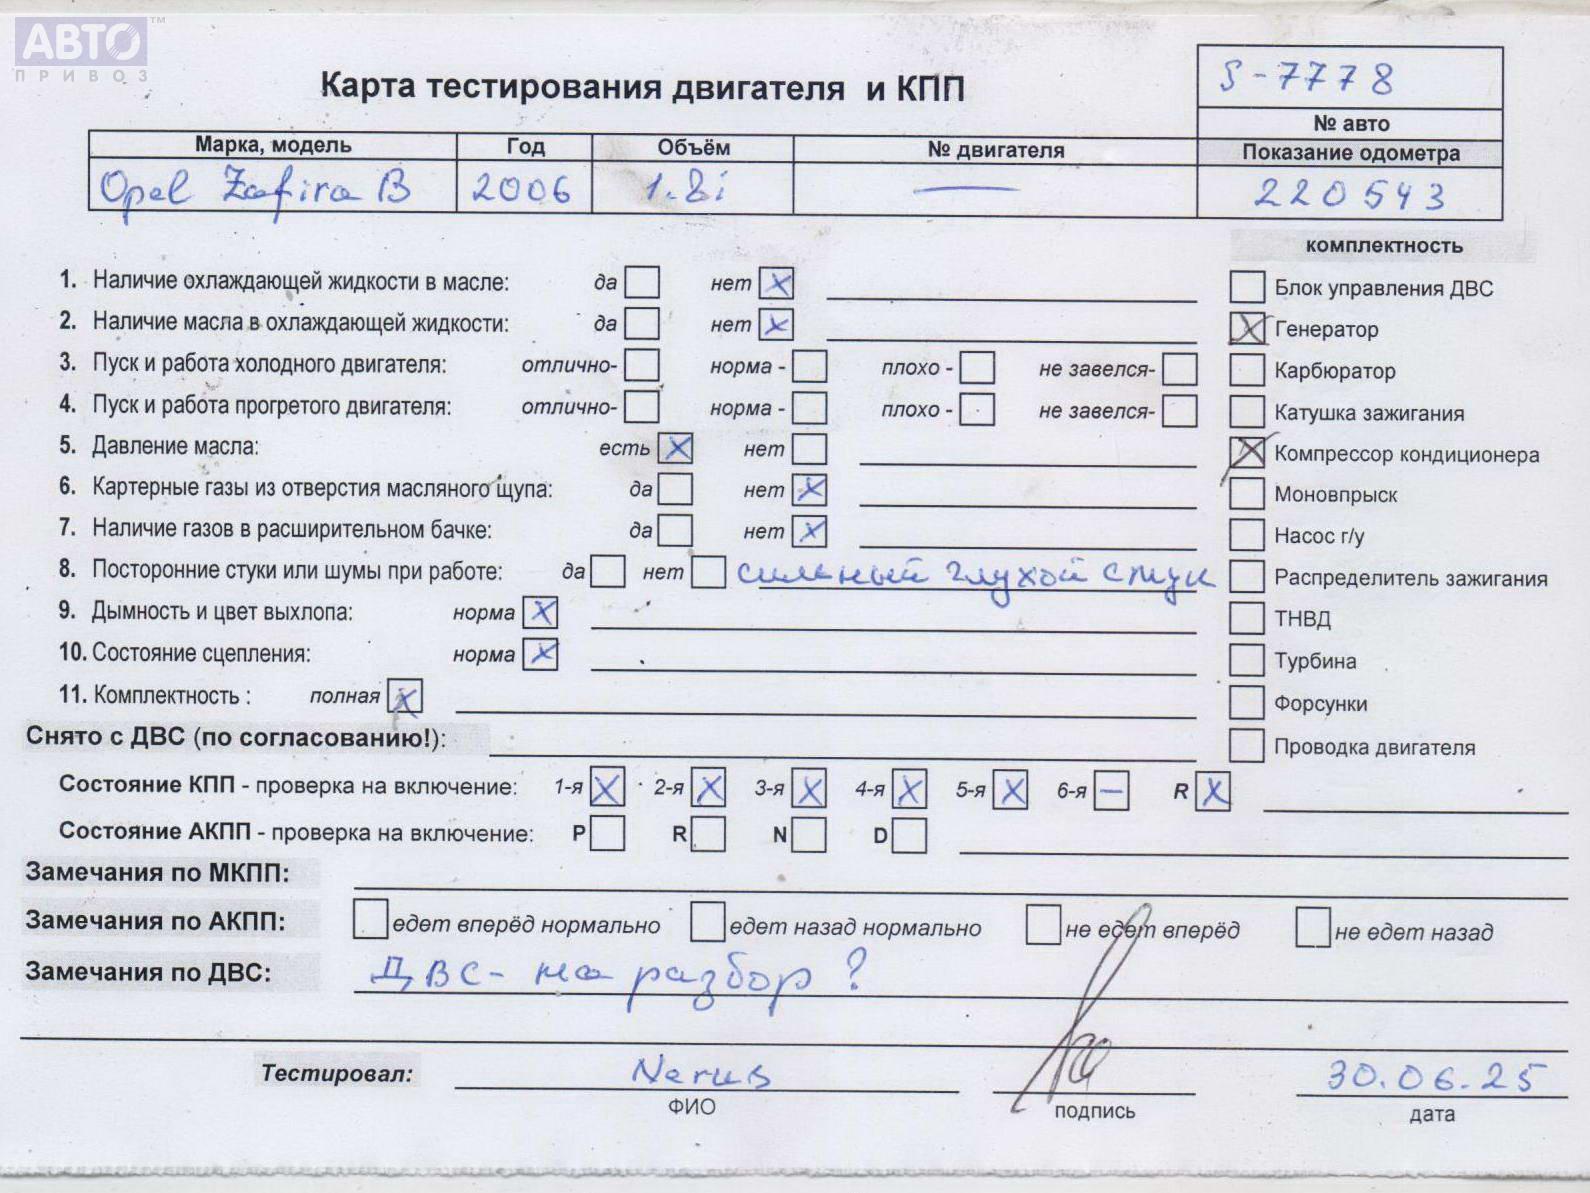 АВТО™
ПРИВОЗ
Карта тестирования двигателя и КПП
S-7778
№ авто
Марка, модель Год Объём № двигателя Показание одометра
Opel Zafira B 2006 1.8i — 220543
комплектность
1. Наличие охлаждающей жидкости в масле: да нет X
Блок управления ДВС
2. Наличие масла в охлаждающей жидкости: да нет X
X Генератор
3. Пуск и работа холодного двигателя: отлично- норма - плохо - не завелся-
Карбюратор
4. Пуск и работа прогретого двигателя: отлично- норма - плохо - не завелся-
Катушка зажигания
5. Давление масла: есть X нет
X Компрессор кондиционера
6. Картерные газы из отверстия масляного щупа: да нет X
Моновпрыск
7. Наличие газов в расширительном бачке: да нет X
Насос г/у
8. Посторонние стуки или шумы при работе: да нет сильный глухой стук
Распределитель зажигания
9. Дымность и цвет выхлопа: норма X
ТНВД
10. Состояние сцепления: норма X
Турбина
11. Комплектность : полная X
Форсунки
Снято с ДВС (по согласованию!):
Проводка двигателя
Состояние КПП - проверка на включение: 1-я X 2-я X 3-я X 4-я X 5-я X 6-я — R X
Состояние АКПП - проверка на включение: P R N D
Замечания по МКПП:
Замечания по АКПП: едет вперёд нормально едет назад нормально не едет вперёд не едет назад
Замечания по ДВС: ДВС - на разбор ?
Тестировал: 30.06.25
ФИО подпись дата